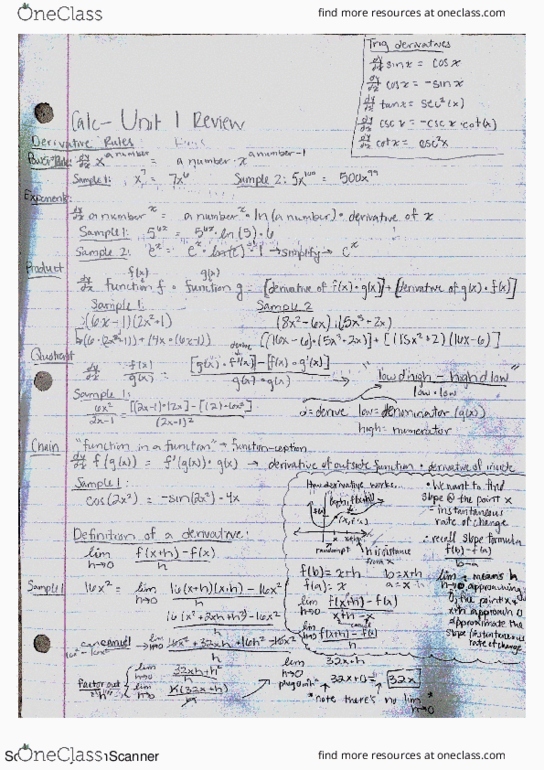 OneClass
find more resources at oneclass.com
Trig derivatives
dy/dx sin x = cos x
dy/dx cos x = -sin x
dy/dx tan x = sec²(x)
dy/dx csc x = -csc x · cot(x)
dy/dx cot x = csc²x
Calc- Unit 1 Review
Derivative Rules
Power Rule: dy/dx x^a number = a number · x^a number-1
Sample 1: x⁷ = 7x⁶ Sample 2: 5x¹⁰⁰ = 500x⁹⁹
Exponent:
dy/dx a number^x = a number^x · ln(a number) · derivative of x
Sample 1: 5^6x = 5^6x · ln(5) · 6
Sample 2: e^x = e^x · ln(e) · 1 → simplify → e^x
Product
f(x) g(x)
dy/dx function f · function g = [derivative of f(x) · g(x)] + [derivative of g(x) · f(x)]
Sample 1: Sample 2
(6x-1)(2x²+1) (8x²-6x)(5x³+2x)
[(16x-6)·(5x³+2x)] + [(15x²+2)(8x-6)]
Quotient
dy/dx f(x)/g(x) = [g(x) · f'(x)] - [f(x) · g'(x)] / g(x) · g(x)
"low d high - high d low"
low · low
Sample 1:
6x²/2x-1 = [(2x-1)·12x] - [(2)·6x²] / (2x-1)²
d = derive low = denominator (g(x))
high = numerator
Chain "function in a function" → function-ception
dy/dx f(g(x)) = f'(g(x)) · g(x) → derivative of outside function · derivative of inside
Sample 1:
cos(2x²) = -sin(2x²) · 4x
How derivative works.
• We want to find
slope @ the point x
- instantaneous
rate of change
• recall slope formula
f(b) - f(a)
b-a
h is distance
from x
f(b) = x+h b = x+h
f(a) = x a = x
lim h→0 f(x+h) - f(a) / x+h - x
lim h→0 f(x+h) - f(a) / h
lim h→0 means h
approaching
0, the point x
x+h approach 0
approximate the
slope/instantaneous
rate of change
Definition of a derivative:
lim h→0 f(x+h) - f(x) / h
Sample 1 16x² = lim h→0 16(x+h)(x+h) - 16x² / h
16(x²+2xh+h²) - 16x²
h
cancel out!
16x² - 16x²
→ lim h→0 16x² + 32xh + 16h² - 16x² / h
factor out
"h"
lim h→0 32xh + h² / h
lim h→0 h(32x+h) / h
lim h→0 32x+h
plug in h 32x+0 = 32x
*note there's no lim h→0 *
Scanner
OneClass
find more resources at oneclass.com